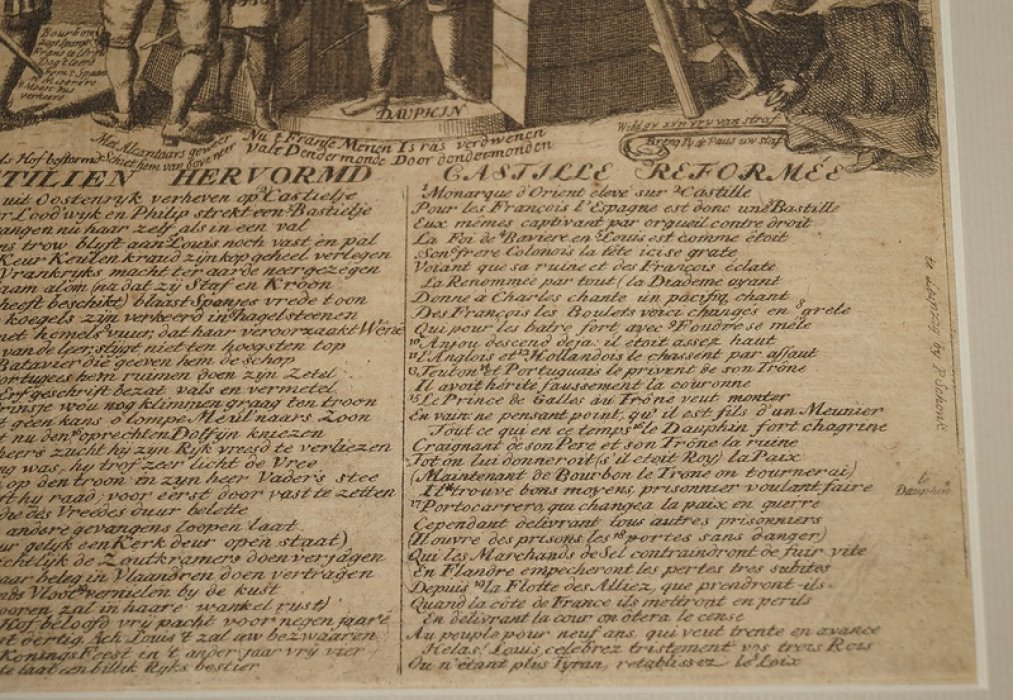 Bourbon
DAUPHIN
Met Alcantaurs geweer
Schiet hem van bove neer
Nu 't Franse Menen Is ras verdwenen
Valt Dendermonde Door dondermonden
van straf
Breng by de Paus uw staf
ls Hof bestormd
TILIEN HERVORMD
uit Oostenryk verheven op Castielje
r Loodwyk en Philip strekt een Bastielje
angen nu haar zelf als in een val
ns trow blyft aan Louis noch vast en pal
Keur Keulen kraud zyn kop geheel verlegen
Vrankryks macht ter aarde neergezegen
aam alom (nu dat zy Staf en Kroon
heeft beschikt) blaast Spanjes vrede toon
koegels zyn verkeerd in hagelsteenen
met hemels vuur, dat haar veroorzaakt
van de leer, stygt niet ten hoogsten top
Batavier die geeven hem de schop
ortugees hem ruimen doen zyn Zetel
Erfgeschrift bezat vals en vermetel
rinsje wou nog klimmen graag ten troon
t geen kans o lompe Meul naars Zoon
t nu den oprechten Dolfyn kniezen
heers zucht hy zyn Ryk vreesd te verliezen
ng was, hy trof zeer licht de Vree
op den troon in zyn heer Vaders stee
ft hy raad, voor eerst door vast te zetten
die des Vreedes duur belette
andere gevangens loopen laat
ur gelyk een Kerk deur open staat)
chtlyk de Zoutkramers doen verjagen
aar beleg in Vlaandren doen vertragen
nds Vloot vernielen by de kust
ooren zal in haare wankel rust)
Hof beloofd vry pacht voor negen jaare
st dertig. Ach Louis 't zal uw bezwaaren
Konings Feest en 't ander jaar vry vier
te laat een billik Ryks bestier
CASTILLE REFORMÉE
1 Monarque d'Orient elevé sur 2 Castille
Pour les François l'Espagne est donc une 3 Bastille
Eux mêmes captivant par orgueil contre droit
La Foi de 4 Baviere en 5 Louis est comme étoit
Son 6 frere Colonois la tête ici se grate
Voiant que sa ruine et des François éclate
La Renommée par tout (la Diademe ayant
Donne à Charles chante un pacifiq chant
Des François les Boulets voici changes en 8 grele
Qui pour les batre fort, avec 9 Foudre se mêle
10 Anjou descend deja: il étoit assez haut
11 l'Anglois et 12 Hollandois le chassent par assaut
13 Teuton 14 et Portuguais le privent de son Trône
Il avoit hérité faussement la couronne
15 Le Prince de Galles au Trône veut monter
En vain: ne pensant point, qu' il est fils d'un Meunier
Tout ce qui en ce temps 16 le Dauphin fort chagrine
Craignant de son Pere et son Trône la ruine
Tot on lui donneroit (s'il etoit Roy) la Paix
(Maintenant de Bourbon le Trône on tourneroi)
Il trouve bons moyens, prisonnier voulant faire
17 Portocarrero, qui changea la paix en guerre
Cependant delivrant tous autres prisonniers
(Il ouvre des prisons les 18 portes sans danger)
Qui les Marchands de Sel contraindront de fuir vite
En Flandre empecheront les pertes tres subites
Depuis 19 la Flotte des Alliez, que prendront-ils
Quand la côte de France ils mettront en perils
En delivrant la cour on ôtera le cense
Au peuple pour neuf ans, qui veut trente en avance
Helas! Louis, celebrez tristement vos trois Rois
Ou n'étant plus Tyran, retablissez les Loix
le
Dauphin